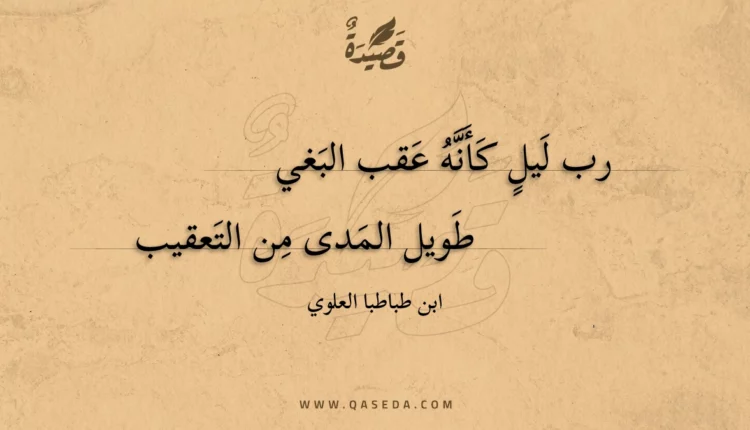 قَصِيدَةٌ
رب لَيلٍ كَأَنَّهُ عَقب البَغي
طَويل المَدى مِن التَعقيب
ابن طباطبا العلوي
WWW.QASEDA.COM